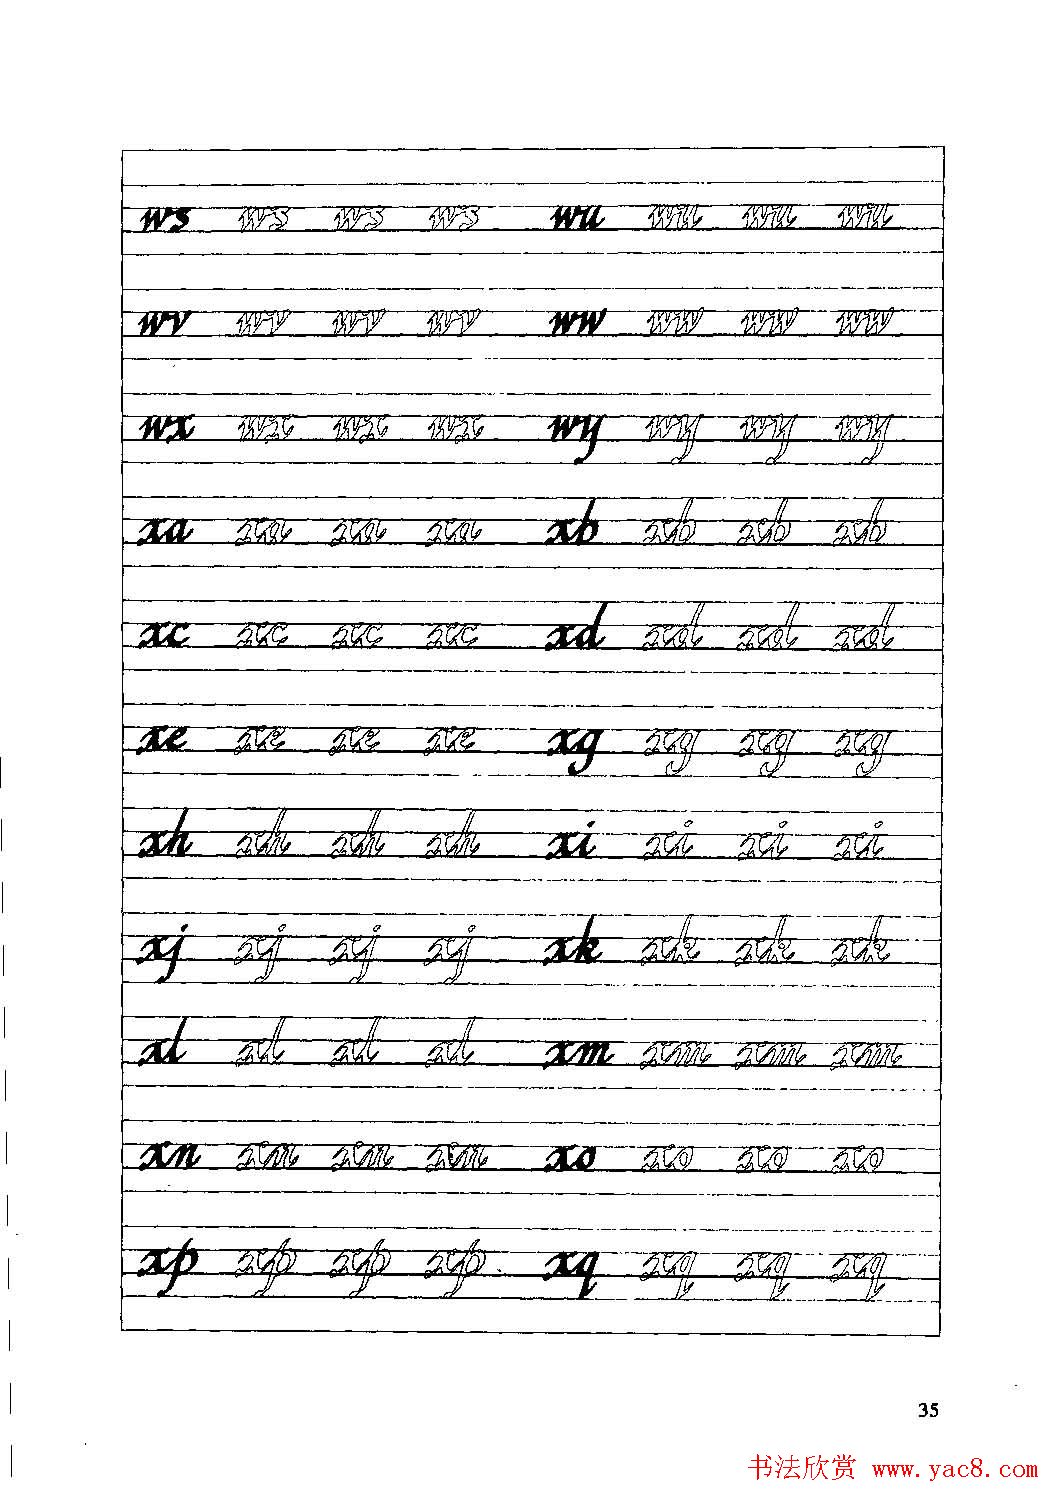 ws ws ws ws wu wu wu wu
wv wv wv wv ww ww ww ww
wx wx wx wx wy wy wy wy
xa xa xa xa xb xb xb xb
xc xc xc xc xd xd xd xd
xe xe xe xe xg xg xg xg
xh xh xh xh xi xi xi xi
xj xj xj xj xk xk xk xk
xl xl xl xl xm xm xm xm
xn xn xn xn xo xo xo xo
xp xp xp xp xq xq xq xq
35
书法欣赏 www.yac8.com